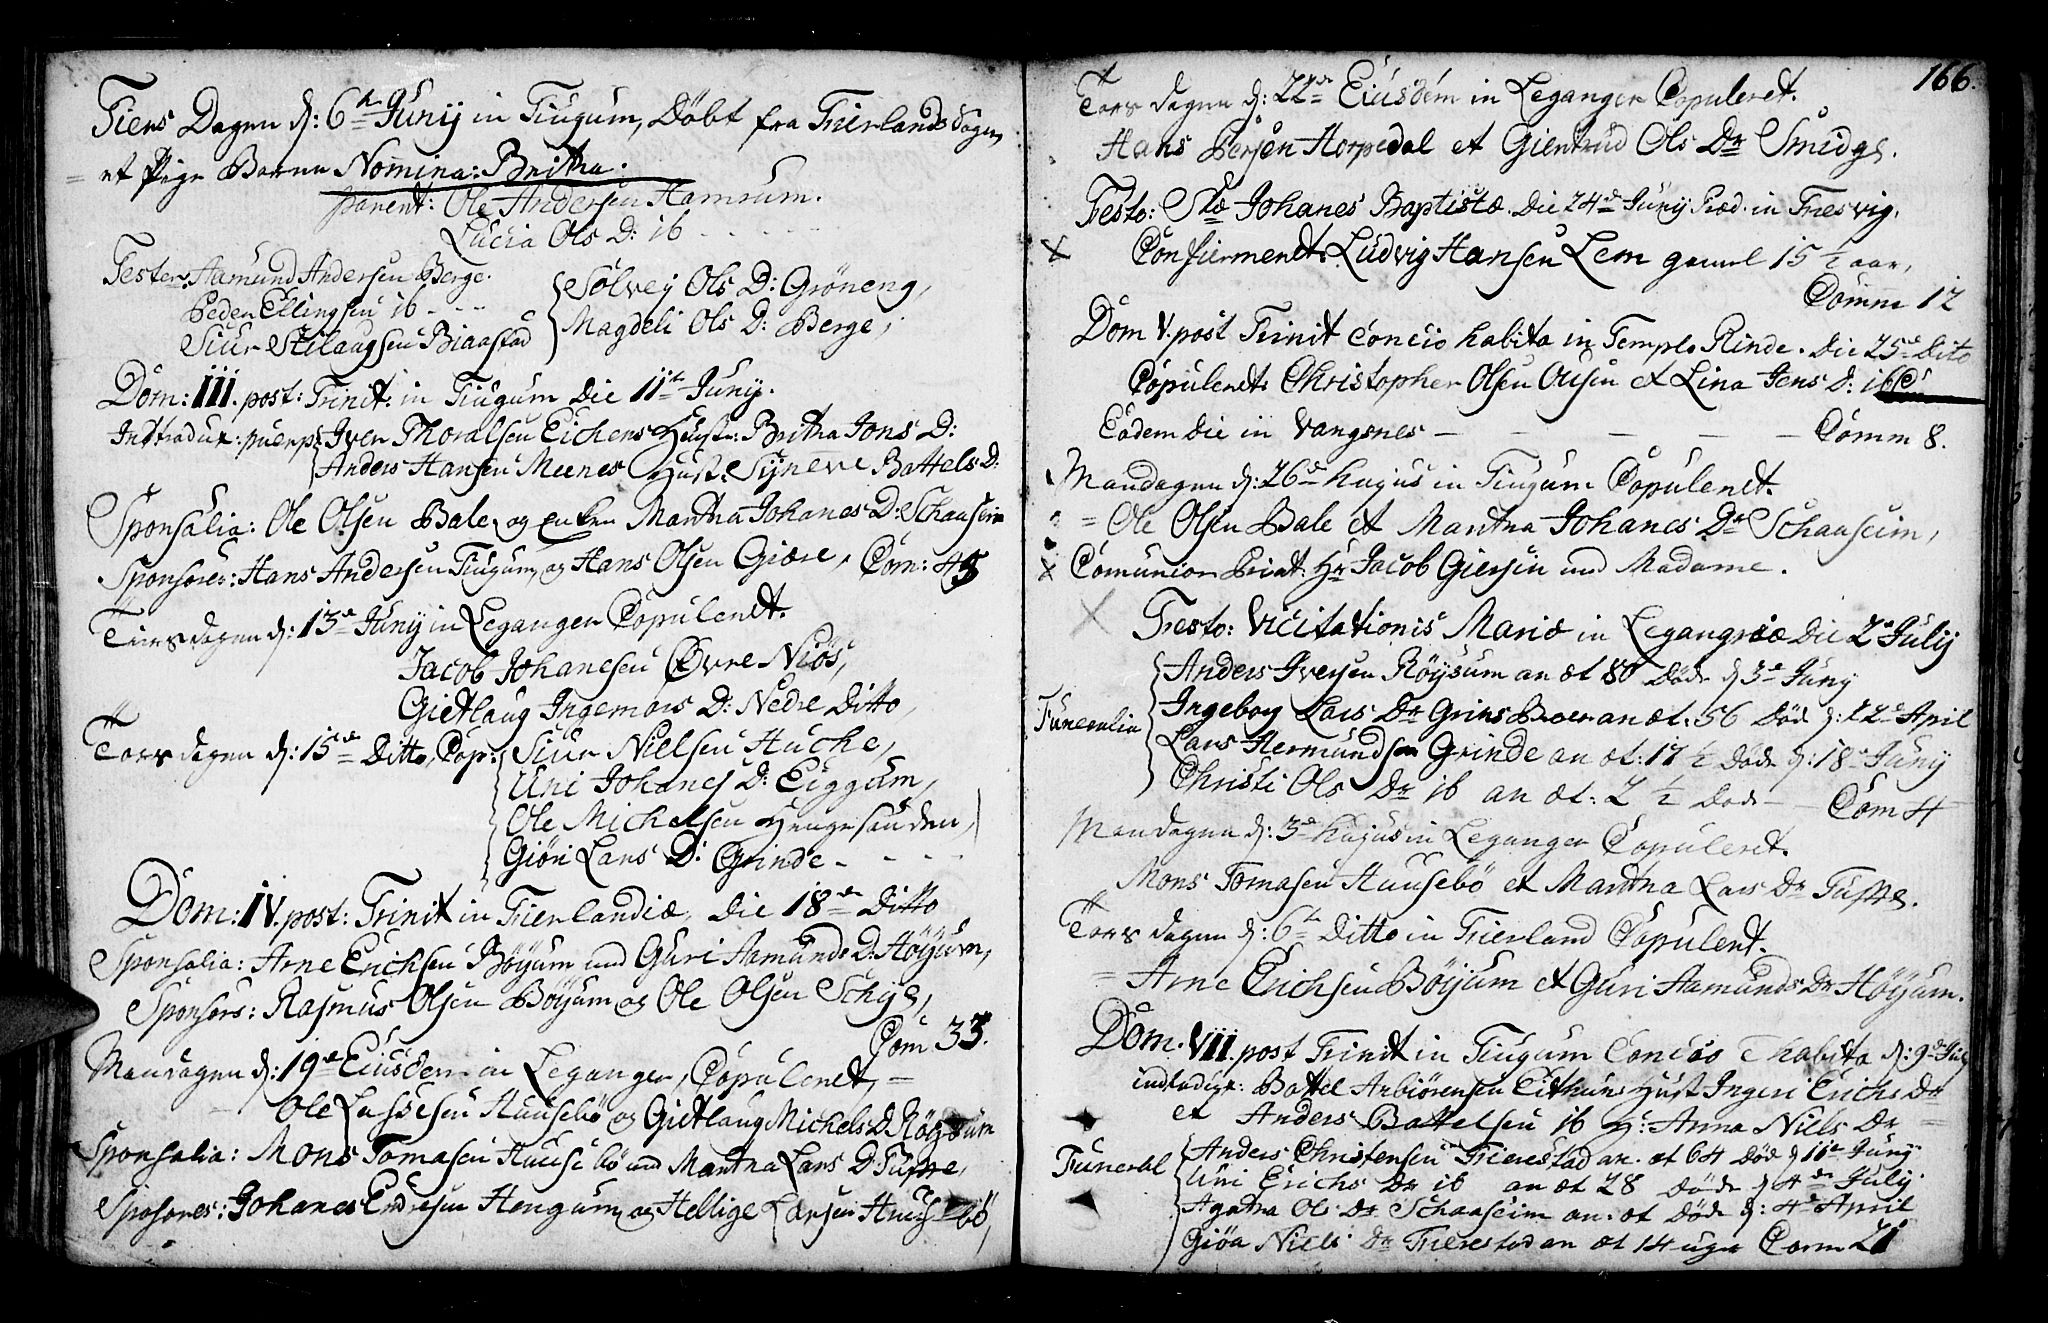 Tiens Dagen d: 6te Junij in Tiugum, Döbt fra Fierlands Sogn,
et Pige Barn Nomina: Britha.
parent: Ole Andersen Hamrum.
Lucia Ols D: ib
Testes Aamund Andersen Berge.
Peder Ellingsen ib
Siur Stilaugsen Biaastad
Sölvej Ols D: Gröneng,
Magdeli Ols D: Berge,
Dom: III. post: Trinit: in Tiugum Die 11te Junij.
Introdux: puerp: Iver Thoralsen Eichens Hustr: Britha Jons D:
Anders Hansen Meenes Hust: Syneve Battels D:
Sponsalia: Ole Olsen Bale og enken Martha Johanes D: Schaaseim
Sponsores: Hans Andersen Tiugum, og Hans Olsen Giære, Com: 43
Tiirsdagen d: 13de Junij in Leganger Copuleret.
Jacob Johanesen Øvre Niös,
Gietlaug Ingemars D: Nedre Ditto,
Torsdagen d: 15de Ditto, Cop: Siur Nielsen Huche,
Uni Johanes D: Eiggum,
Ole Michelsen Hengesanden,
Giöri Lars D: Grinde
Dom: IV. post: Trinit in Fierlandiæ, Die 18de Ditto
Sponsalia: Arne Erichsen Böyum und Guri Aamunds D: Höyum,
Sponsors: Rasmus Olsen Böyum og Ole Olsen Schye,
Com 33.
Mandagen d: 19de Eiusdem in Leganger, Copuleret,
Ole Lassesen Huusebö og Gietlaug Michels D Röysum
Sponsalia: Mons Tomasen Huusebö und Martha Lars D Tuffte,
Sposores: Johanes Endresen Hengum og Hellige Larsen Huusebö,
166.
Torsdagen d: 22de Eiusdem in Leganger Copuleret.
Hans Persen Horpedal et Giertrud Ols Dr Smidge.
Festo: Stæ Johanes Baptistæ. Die 24de Junij Præd. in Fresvig.
Confiermeret Ludvig Hansen Lem gamel 15 1/2 aar,
Comm 12
Dom V. post Trinit Concio habita in Templo Rinde. Die 25de Dito
Copuleret Christopher Olsen Ousen et Lina Jens D: ib
Eodem Die in Vangsnes Comm 8.
Mandagen d: 26de hujus in Tiugum Copuleret.
Ole Olsen Bale et Martha Johanes Dr Schaaseim,
Comunion Privat Hr Jacob Giersen und Madame.
Festo: Vicitationis Mariæ in Legangriæ Die 2de Julij
Funeralia Anders Iversen Röysum an æt 80 Döde d 3de Junij
Ingeborg Lars Dr Grinsboen an æt: 56 Död d: 22de April
Lars Hermundsen Grinde an æt: 17 1/2 Döde d: 18de Junij
Christi Ols Dr ib an æt: 2 1/2 Död Com 4
Mandagen d: 3de hujus in Leganger Copuleret.
Mons Tomasen Huusebö et Martha Lars Dr Tuffte.
Torsdagen d: 6te Ditto in Fierland Copuleret.
Arne Erichsen Böyum et Guri Aamunds Dr Höyum.
Dom. VII. post Trinit in Tiugum Concio habita d: 9de Julij
Battel Anbiörensen Eithuns Hust Ingeri Erichs Dr
et Anders Battelsen ib H: Anna Niels Dr
Funeral Anders Christensen Fierestad an. æt 64 Död d 11te Junij
Uni Erichs Dr ib an æt 28 Döde d 4de Julij.
Agatha Ols Dr Schaaseim an. æt Döde d: 4de April
Giöa Niels Dr Fierestad an æt 14 uger Comm 21